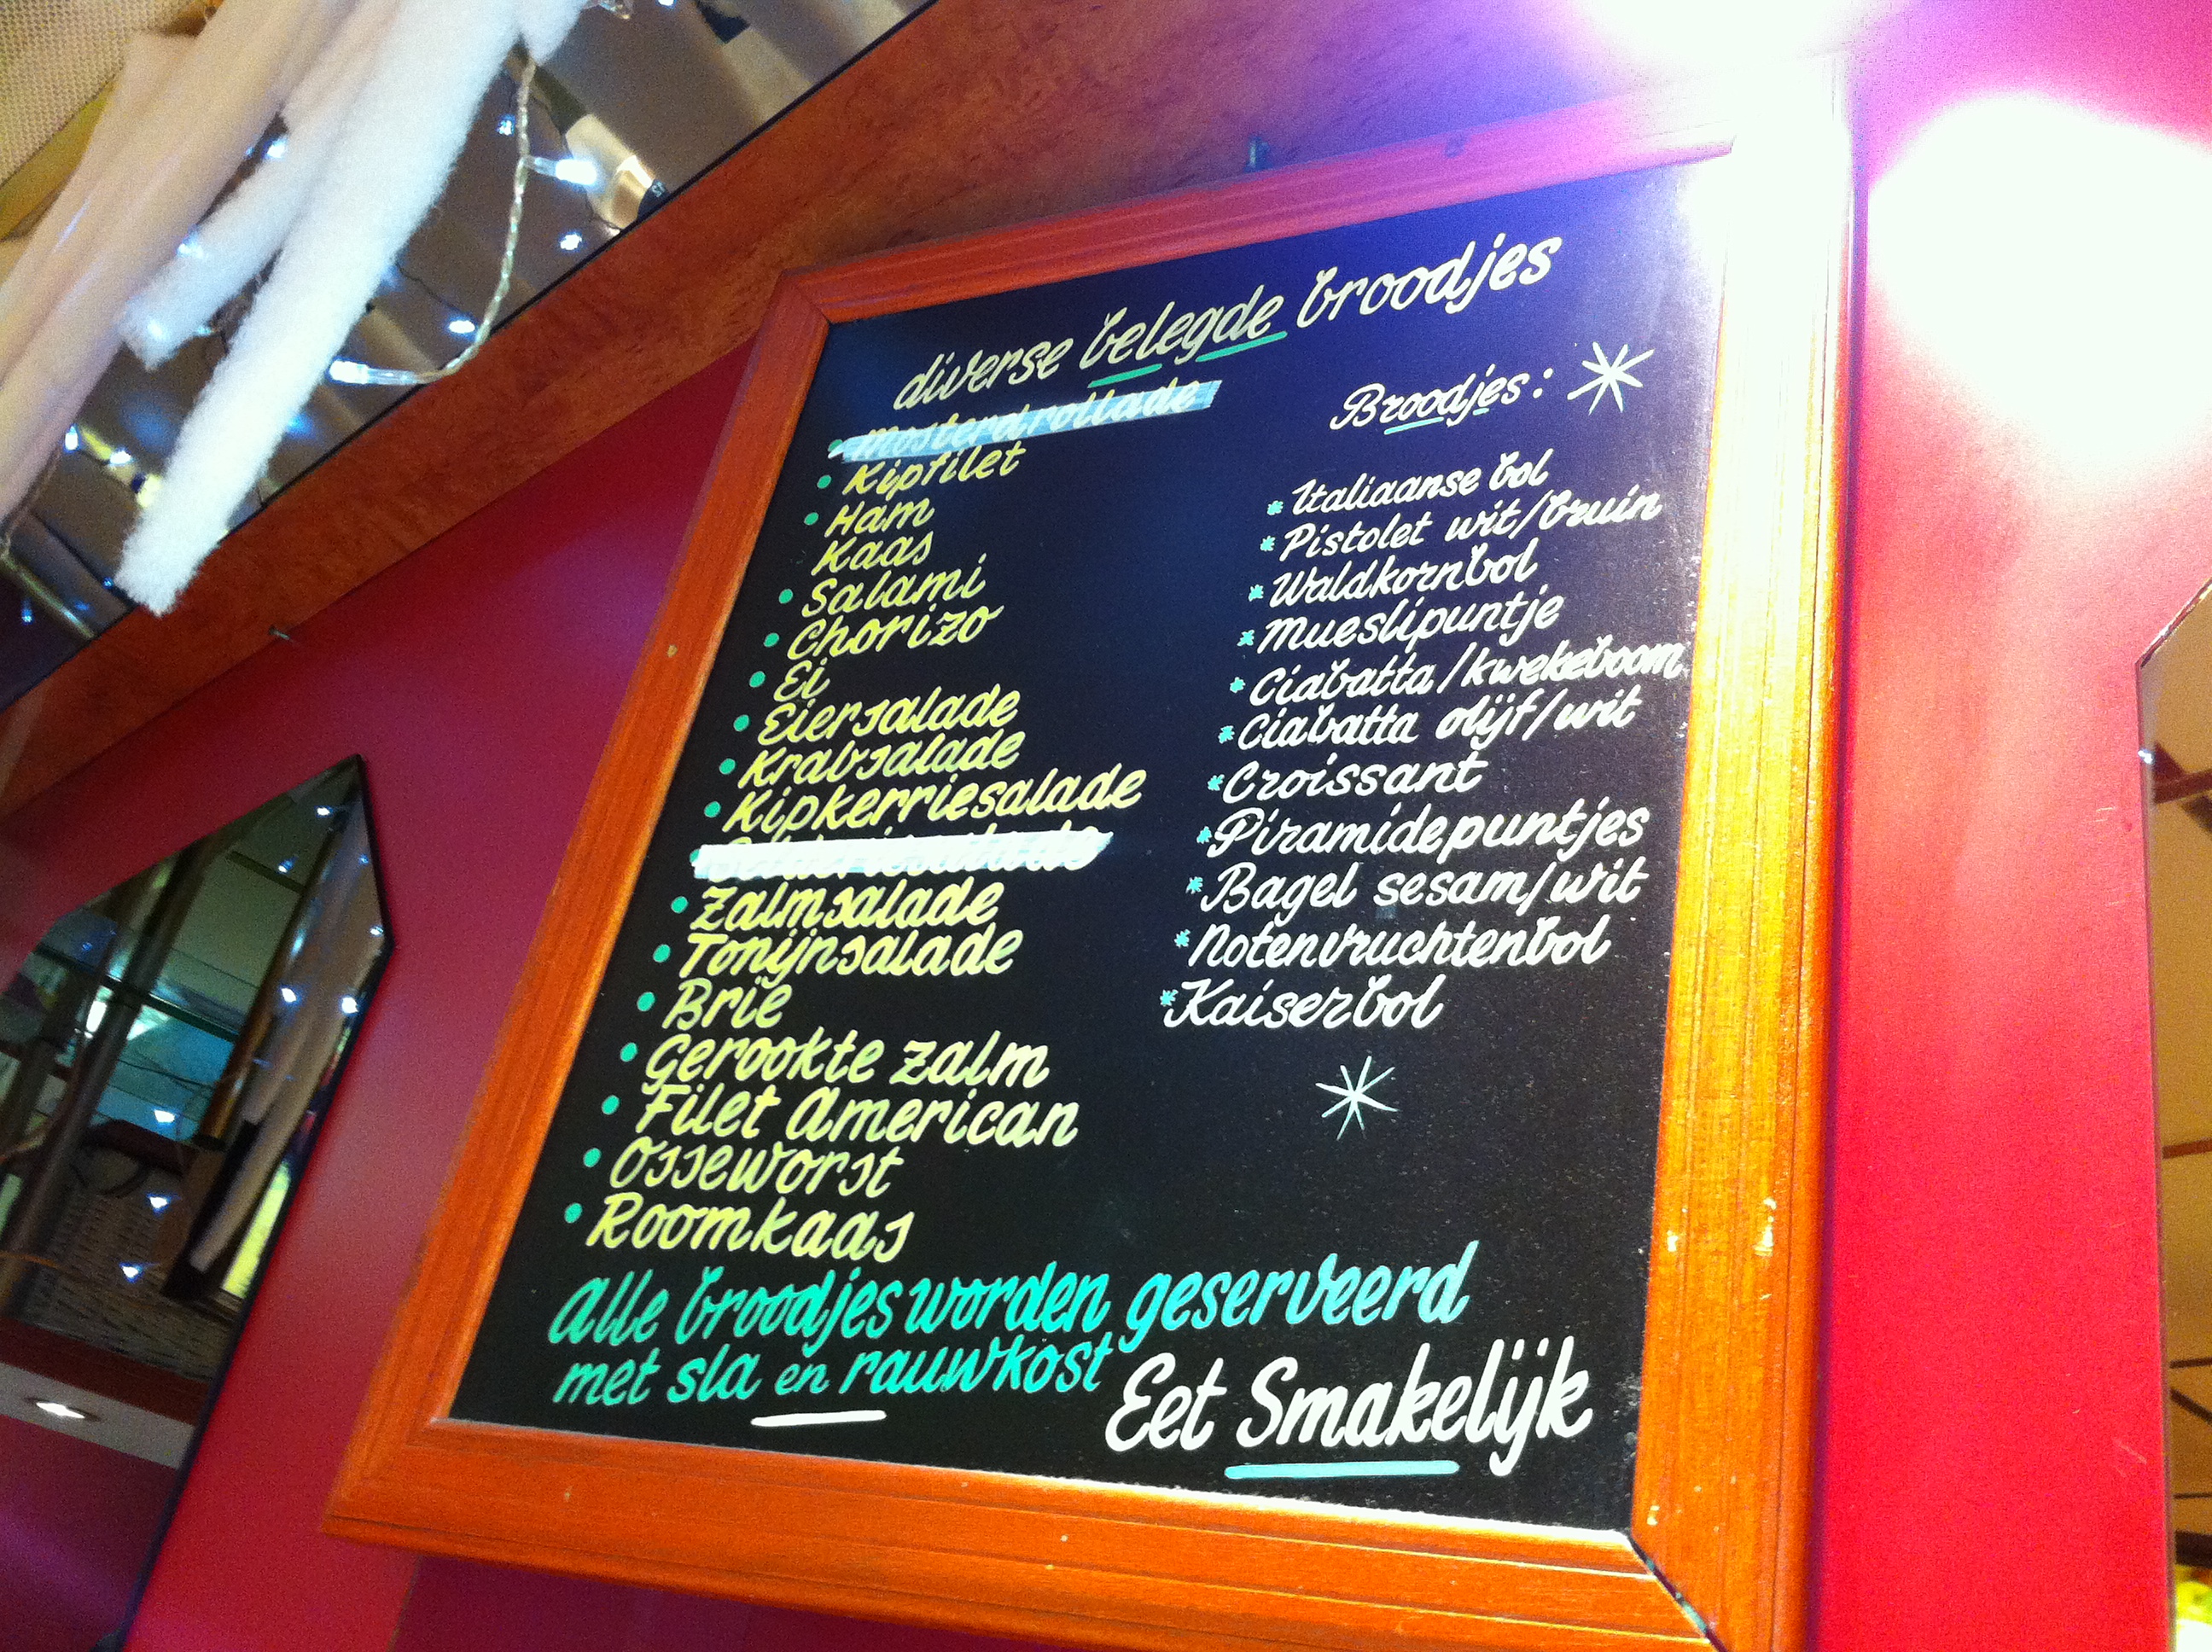 diverse belegde broodjes
mosterdrollade
Kipfilet
Ham
Kaas
Salami
Chorizo
Ei
Eiersalade
Krabsalade
Kipkerriesalade
Zalmsalade
Tonijnsalade
Brie
Gerookte zalm
Filet American
Ossewors​t
Roomkaas
Broodjes:
Italiaanse bol
Pistolet wit/bruin
Waldkornbol
Mueslipuntje
Ciabatta/kwekeboom
Ciabatta olijf/wit
Croissant
Piramidepuntjes
Bagel sesam/wit
Notenvruchtenbol
Kaiserbol
Alle broodjes worden geserveerd
met sla en rauwkost
Eet Smakelijk